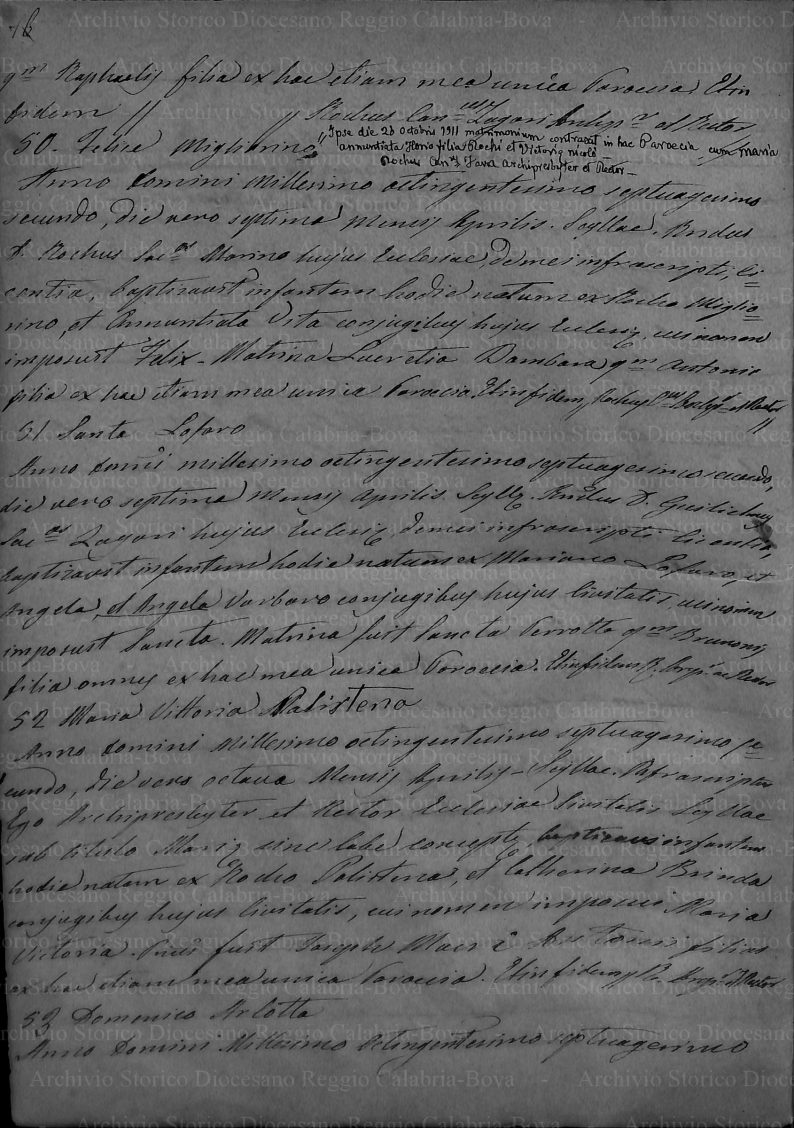 qm Raphaelis filia ex hac etiam mea unica Paroecia. Et in
fidem // // Rochus Canus Zagari Archipr et Rector
50. Felice Migliorino
"Ipse die 26 Octobris 1911 matrimonium contraxit in hac Paroecia cum Maria
Annuntiata Florio filia Rochi et Victoriae Nicolò
Rochus Can. Fava Archipresbyter et Rector
Anno Domini Millesimo octingentesimo septuagesimo
secundo, die vero septima Mensis Aprilis. Scyllae. Rndus
D. Rochus Sacos Marino hujus Ecclesiae, de mei infrascripti, li=
centia, baptizavit infantem hodie natum ex Rocho Miglio=
rino, et Annuntiata Vita conjugibus hujus Ecclesiae, cui nomen
imposuit Felix. Matrina Lucretia Dambara qm Antonii
filia ex hac etiam mea unica Paroecia. Et in fidem, Rochus Archipr et Rector
51. Santa Lofaro
Anno Domini millesimo octingentesimo septuagesimo secundo,
die vero septima Mensis Aprilis Scyllae. Rndus D. Guilielmus
Sacos Zagari hujus Ecclesiae, de mei infrascripti licentia
baptizavit infantem hodie natum ex Mariano Lofaro, et
Angela, et Angela Varbaro conjugibus hujus Civitatis, cui nomen
imposuit Sancta. Matrina fuit Sancta Perrotta qm Brunonis
filia omnes ex hac mea unica Paroecia. Et in fidem R. Archipr et Rector
52 Maria Vittoria Palistena
Anno Domini Millesimo octingentesimo septuagesimo se=
cundo, die vero octava Mensis Aprilis. Scyllae. Infrascriptus
Ego Archipresbyter et Rector Ecclesiae Civitatis Scyllae
sub titulo Mariae sine labe conceptae baptizavi infantem
hodie natam ex Rocho Palistena, et Catherina Brinda
conjugibus hujus Civitatis, cui nomen imposui Maria
Victoria. fuit Joseph Macrì filius
ex hac etiam mea unica Paroecia. Et in fidem R. Archipr et Rector
53 Domenico Arlotta
Anno Domini Millesimo Octingentesimo septuagesimo
Archivio Storico Diocesano Reggio Calabria-Bova